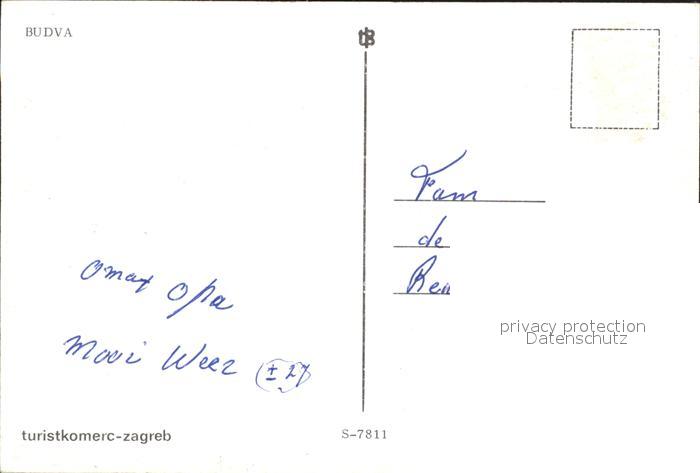 BUDVA
tz
Fam
de
Rea
Oma + Opa
Mooi Weer ± 27
privacy protection
Datenschutz
turistkomerc-zagreb
S-7811